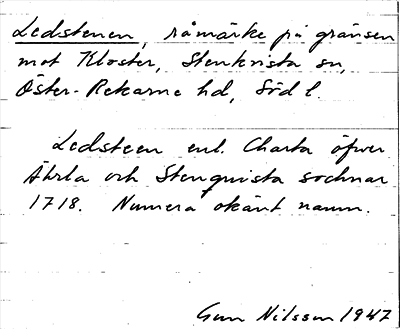 Ledstenen, råmärke på gränsen
mot Kloster, Stenkvista sn,
Öster-Rekarne hd, Södl.
Ledsteen enl. Charta öfwer
Ährla och Stenqvista sochnar
1718. Numera okänt namn.
Gun Nilsson 1947